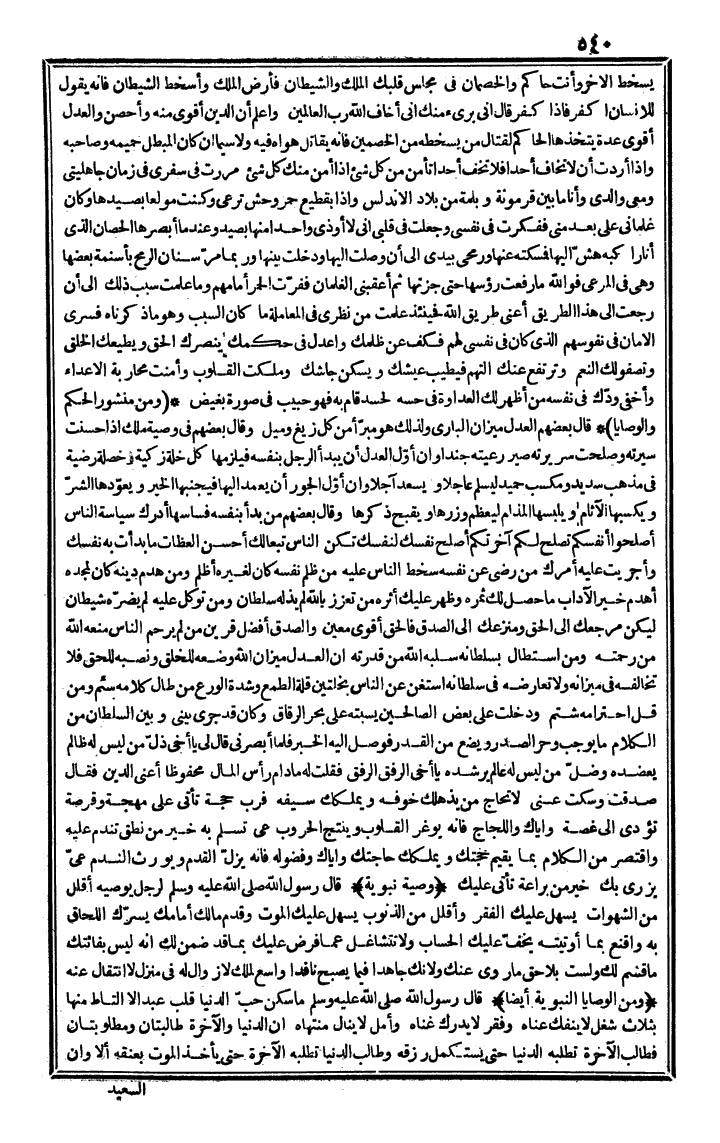 ٥٤٠
يسخط الاخر وأنت حاكم والخصمان فى مجلس قلبك الملك والشيطان فأرض الملك وأسخط الشيطان فانه يقول
للانسان اكفر فاذا كفر قال انى برىء منك انى أخاف الله رب العالمين واعلم أن الدين أقوى منه وأحصن والعدل
أقوى عدة يتخذها الحاكم لقتال من يسخطه من الخصمين فانه يقاتل هواه فيه ولاسيما ان كان المبطل حميمه وصاحبه
واذا أردت أن لا تخاف أحدا فلا تخف أحدا تأمن من كل شئ اذا أمن منك كل شئ مررت فى سفرى فى زمان جاهليتى
ومعى والدى وأنا ما بين قرمونة وبلمة من بلاد الاندلس واذا بقطيع حمر وحش ترعى وكنت مولعا بصيدها وكان
غلمانى على بعد منى ففكرت فى نفسى وجعلت فى قلبى انى لا أوذى واحدا منها بصيد وعندما أبصرها الحصان الذى
أنا راكبه هش اليها فسكته عنها ورمحى بيدى الى أن وصلت اليها ودخلت بينها وربما مر سنان الرمح بأسنمة بعضها
وهى فى المرعى فوالله ما رفعت رؤسها حتى جزتها ثم أعقبنى الغلمان ففرت الحمر أمامهم وما علمت سبب ذلك الى أن
رجعت الى هذا الطريق أعنى طريق الله فحينئذ علمت من نظرى فى المعاملة ما كان السبب وهو ما ذكرناه فسرى
الامان فى نفوسهم الذى كان فى نفسى لهم فكف عن ظلمك واعدل فى حكمك ينصرك الحق ويطيعك الخلق
وتصفو لك النعم وترتفع عنك التهم فيطيب عيشك ويسكن جاشك وملكت القلوب وأمنت محاربة الاعداء
وأخفى ودك فى نفسه من أظهر لك العداوة فى حسه لحسد قام به فهو حبيب فى صورة بغيض ﴿ومن منثور الحكم
والوصايا﴾ قال بعضهم العدل ميزان البارى ولذلك هو مبرأ من كل زيغ وميل وقال بعضهم فى وصية ملك اذا حسنت
سيرته وصلحت سريرته صير رعيته جندا وان أول العدل أن يبدأ الرجل بنفسه فيلزمها كل خلة زكية وخصلة رضية
فى مذهب سديد ومكسب حميد ليسلم عاجلا ويسعد آجلا وان أول الجور أن يعمد اليها فيجنبها الخير ويعودها الشر
ويكسبها الآثام ويلبسها المذام ليعظم وزرها ويقبح ذكرها وقال بعضهم من بدأ بنفسه فساسها أدرك سياسة الناس
أصلحوا أنفسكم تصلح لكم آخرتكم أصلح نفسك لنفسك تكن الناس تبعا لك أحسن العظات ما بدأت به نفسك
وأجريت عليه أمرك من رضى عن نفسه سخط الناس عليه من ظلم نفسه كان لغيره أظلم ومن هدم دينه كان لمجده
أهدم خير الآداب ما حصل لك ثمره وظهر عليك أثره من تعزز بالله لم يذله سلطان ومن توكل عليه لم يضره شيطان
ليكن مرجعك الى الحق ومنزعك الى الصدق فالحق أقوى معين والصدق أفضل قرين من لم يرحم الناس منعه الله
من رحمته ومن استطال بسلطانه سلبه الله من قدرته ان العدل ميزان الله وضعه للخلق ونصبه للحق فلا
تخالفه فى ميزانه ولا تعارضه فى سلطانه استغن عن الناس بخلتين قلة الطمع وشدة الورع من طال كلامه سئم ومن
قل احترامه شتم ودخلت على بعض الصالحين بسبته على بحر الزقاق وكان قد جرى بينى وبين السلطان من
الكلام ما يوجب وحر الصدر ويضع من القدر فوصل اليه الخبر فلما أبصرنى قال لى يا أخى ذل من ليس له ظالم
يعضده وضل من ليس له عالم يرشده يا أخى الرفق الرفق فقلت له ما دام رأس المال محفوظا أعنى الدين فقال
صدقت وسكت عنى لا تحاج من يذهلك خوفه ويملكك سيفه فرب حجة تأتى على مهجة وفرصة
تؤدى الى غصة واياك واللجاج فانه يوغر القلوب وينتج الحروب عى تسلم به خير من نطق تندم عليه
واقتصر من الكلام بما يقيم حجتك ويملكك حاجتك واياك وفضوله فانه يزل القدم ويورث الندم عى
يزرى بك خير من براعة تأتى عليك ﴿وصية نبوية﴾ قال رسول الله صلى الله عليه وسلم لرجل يوصيه أقلل
من الشهوات يسهل عليك الفقر وأقلل من الذنوب يسهل عليك الموت وقدم مالك أمامك يسرك اللحاق
به واقنع بما أوتيته يخف عليك الحساب ولا تتشاغل عما فرض عليك بما قد ضمن لك انه ليس بفائتك
ما قسم لك ولست بلاحق ما زوى عنك ولا تك جاهدا فيما يصبح نافدا واسع لملك لا زوال له فى منزل لا انتقال عنه
﴿ومن الوصايا النبوية أيضا﴾ قال رسول الله صلى الله عليه وسلم ما سكن حب الدنيا قلب عبد الا التاط منها
بثلاث شغل لا ينفك عناه وفقر لا يدرك غناه وأمل لا ينال منتهاه ان الدنيا والآخرة طالبتان ومطلوبتان
فطالب الآخرة تطلبه الدنيا حتى يستكمل رزقه وطالب الدنيا تطلبه الآخرة حتى يأخذ الموت بعنقه ألا وان
السعيد